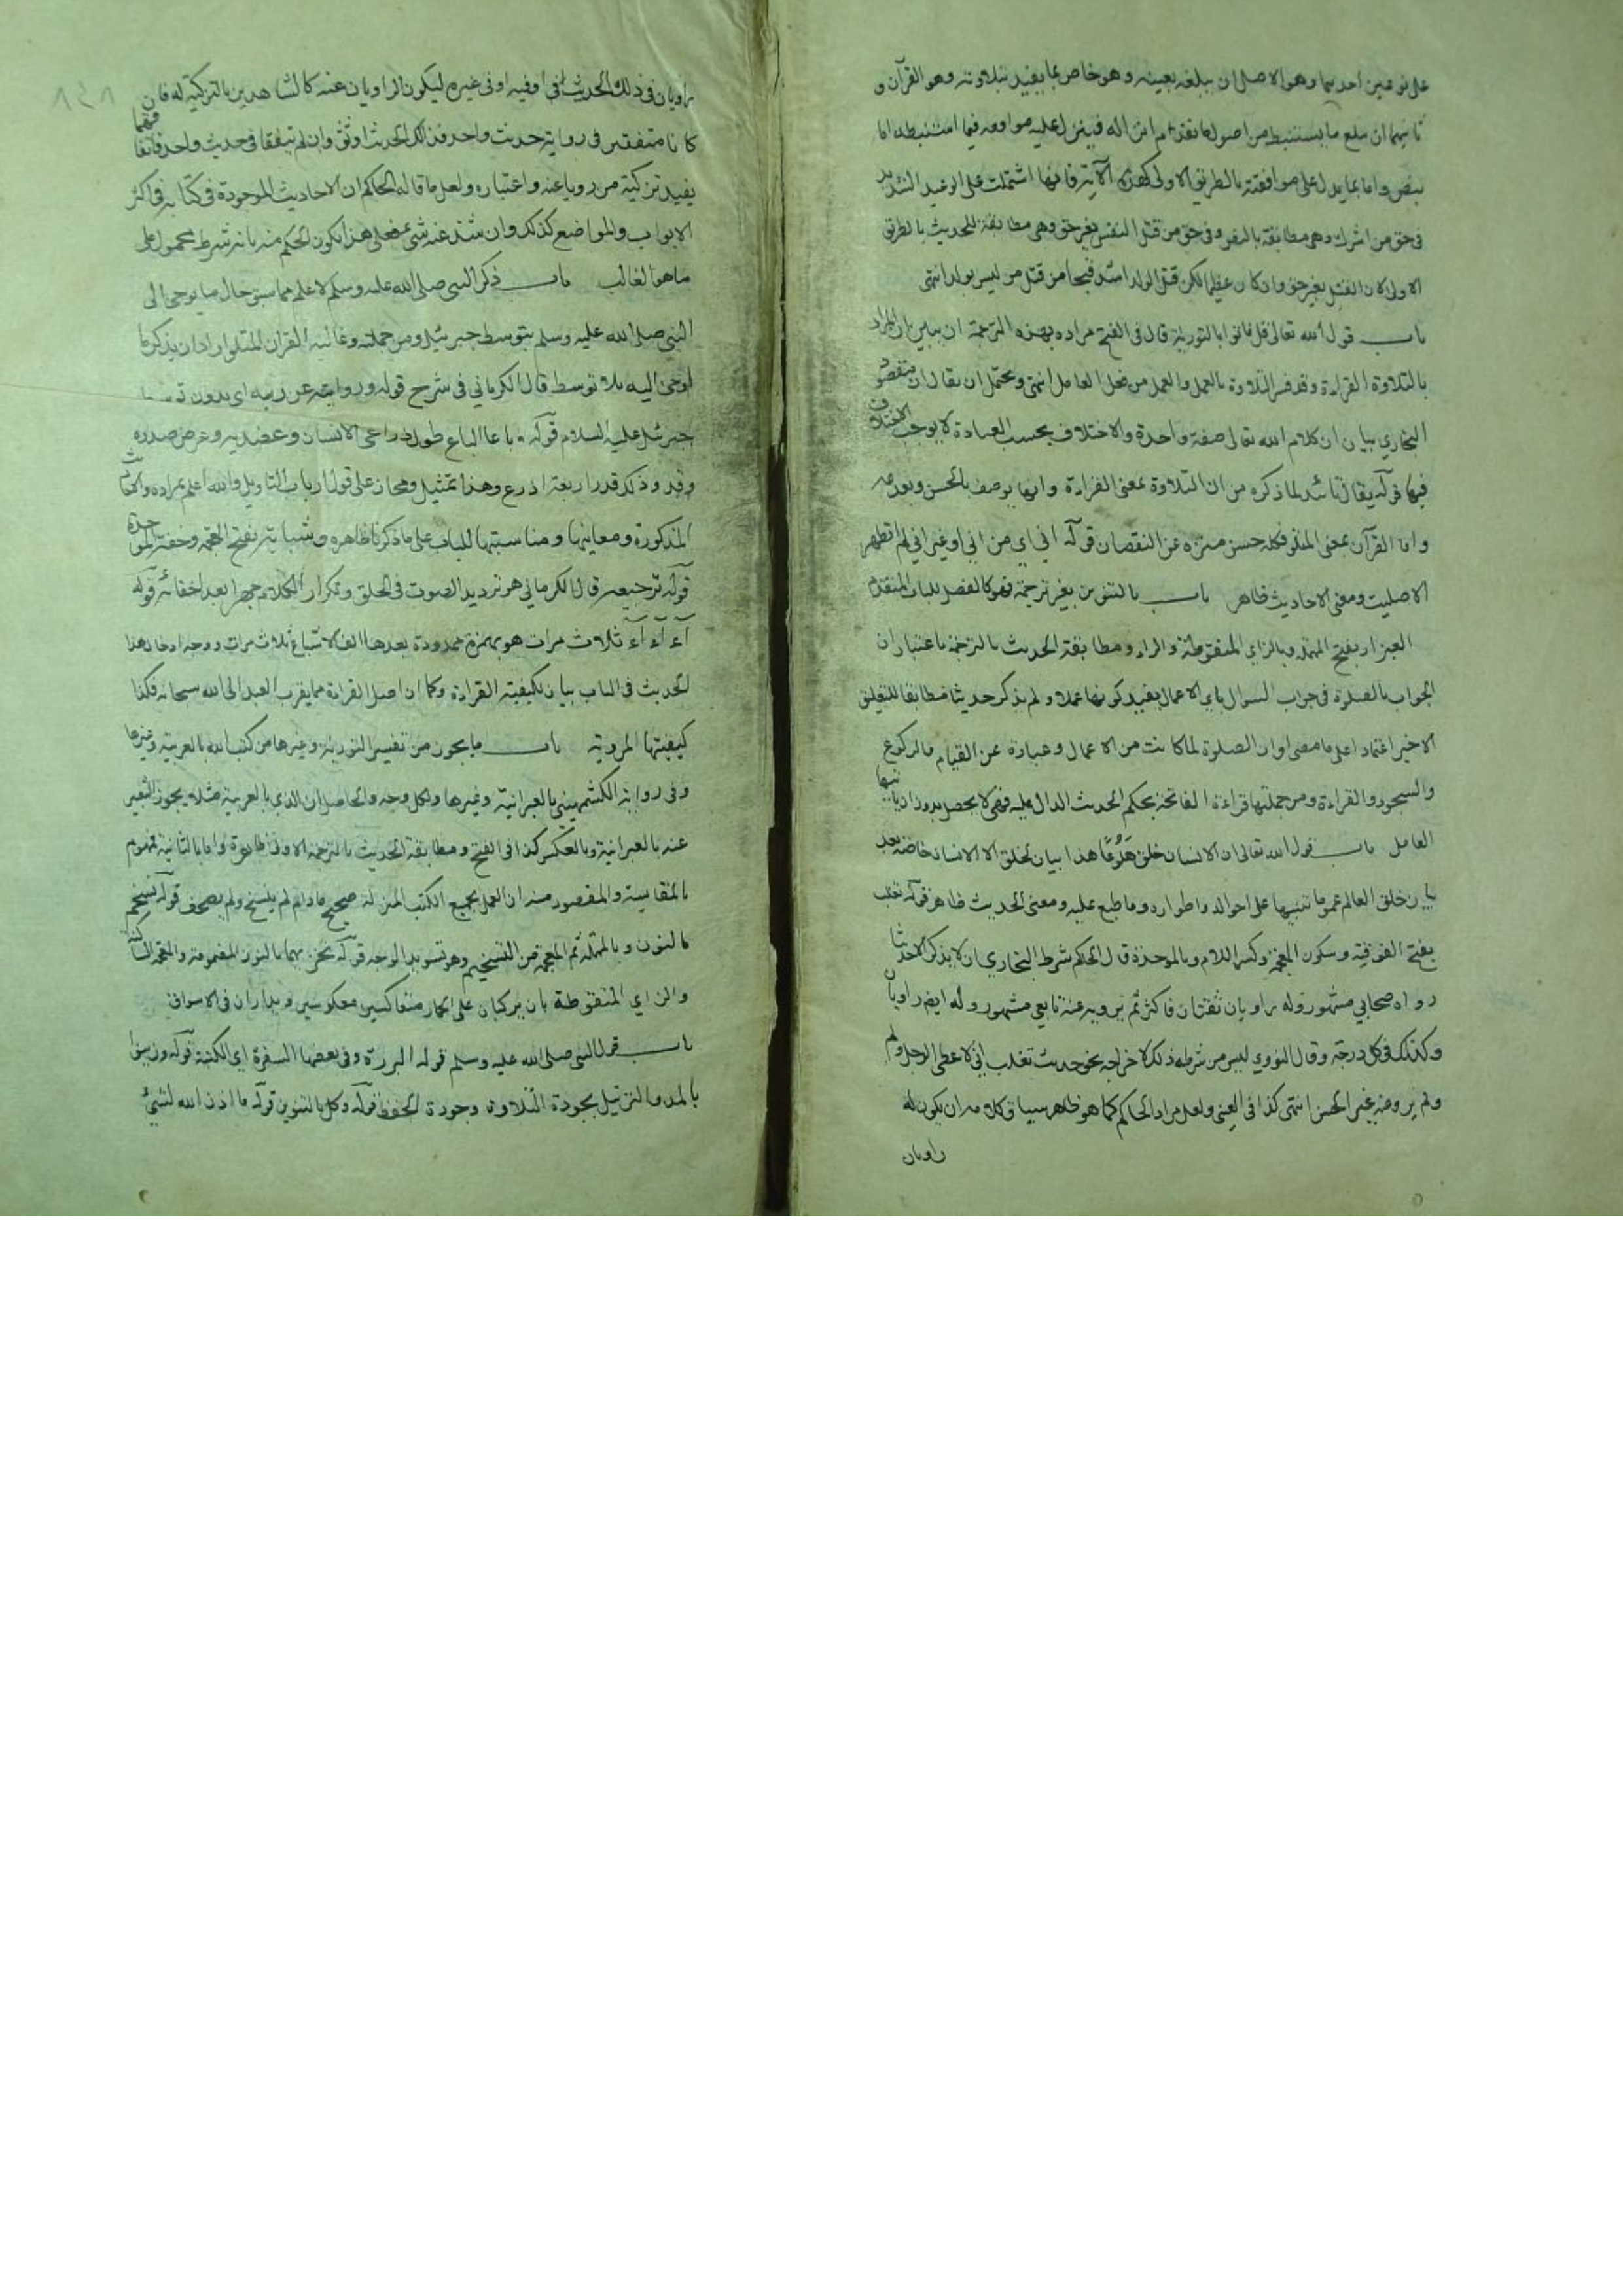 على نوعين احديهما وهو الاصل ان يبلغه بعينه وهو خاص بما يفيد بتلاوته وهو القرآن و
ثانيهما ان يبلغ ما يستنبط من اصول ما تقدم انزاله فينزل عليه موافقه فيما استنبطه اما
بنصه واما بما يدل على موافقته بالطريق الاولى كهذه الآية فانها اشتملت على الوعيد الشديد
فى حق من اشرك وهى مطابقة بالنص وفى حق من قتل النفس بغير حق وهى مطابقة للحديث بالطريق
الاولى لان القتل بغير حق وان كان عظيما لكن قتل الولد اشد قبحا من قتل من ليس بولد انتهى
باب قول الله تعالى قل فاتوا بالتورية قال فى الفتح مراده بهذه الترجمة ان يبين ان المراد
بالتلاوة القراءة وقد فسر التلاوة بالعمل والعمل من فعل العامل انتهى ويحتمل ان يقال ان مقصود
البخاري بيان ان كلام الله تعالى صفة واحدة والاختلاف بحسب العبادة لا يوجب الاختلاف
فيها قوله يقال تائيد لما ذكره من ان التلاوة بمعنى القراءة وانها يوصف بالحسن وبعدمه
واما القرآن بمعنى المتلو فكله حسن منزه عن النقصان قوله انى اي من انى او غير انى لم اتطهر
الاصليت ومعنى الاحاديث ظاهر باب بالتنوين بغير ترجمة فهو كالفصل للباب المتقدم
العيزار بفتح المهملة وبالزاي المنقوطة والراء ومطابقة الحديث بالترجمة باعتبار ان
الجواب بالصلوة فى جواب السوال باي الاعمال يفيد كونها عملا ولم يذكر حديثا مطابقا للتعليق
الاخير اعتمادا على ما مضى او ان الصلوة لما كانت من الاعمال وعبادة عن القيام والركوع
والسجود والقراءة ومن جملتها قراءة الفاتحة بحكم الحديث الدال عليه فهى لا يحصل بدون اتيانها
العامل باب قول الله تعالى ان الانسان خلق هَلُوعًا هذا بيان لخلق الانسان خاصة بعد
بيان خلق العالم عموما تنبيها على احواله واطواره وما طبع عليه ومعنى الحديث ظاهر قوله تغلب
بفتح الفوقية وسكون المعجمة وكسر اللام وبالموحدة قال الحاكم شرط البخاري ان لا يذكر الا حديثا
رواه صحابي مشهور وله راويان ثقتان فاكثر ثم يرويه عنه تابعي مشهور وله ايضا راويان
وكذلك فى كل درجة وقال النووي ليس من شرطه ذلك لاخراجه نحو حديث تغلب انى لاعطى الرجل ولم
ولم يروه غير الحسن انتهى كذا فى العينى ولعل مراد الحاكم كما هو ظاهر سياق كلامه ان يكون له
راويان
راويان فى ذلك الحديث اى اوفيه او فى غيره ليكون الراويان عنه كالشاهدين بالتزكية له فان
كانا متفقين فى رواية حديث واحد فذلك الحديث اوثق وان لم يتفقا فى حديث واحد فاتفاقهما
يفيد تزكية من رويا عنه واعتباره ولعل ما قاله الحاكم ان الاحاديث الموجودة فى كتابه فى اكثر
الابواب والمواضع كذلك وان شذ عنه شئ فعلى هذا يكون الحكم منه بانه شرط محمول على
ما هو الغالب باب ذكر النبى صلى الله عليه وسلم لا علم مما سبق حال ما يوحى الى
النبى صلى الله عليه وسلم بتوسط جبرئيل ومن جملته وغالبه القران المتلو اراد ان يذكر ما
اوحى اليه بلا توسط قال الكرماني فى شرح قوله وروايته عن ربه اى بدون توسط
جبرئيل عليه السلام قوله وباعا الباع طول ذراعى الانسان وعضديه وعرض صدره
وقد وذلك قدر اربعة اذرع وهذا تمثيل ومجاز على قول ارباب التاويل والله اعلم بمراده والاحاديث
المذكورة ومعانيها ومناسبتها للباب على ما ذكرنا ظاهره وشبابة بفتح المعجمة وخفة الموحدة
قوله ترجيعه قال الكرماني هو ترديد الصوت فى الحلق وتكرار الكلام جهرا بعد اخفائه قوله
آء آء آء ثلاث مرات هو بهمزة ممدودة بعدها الف الاشباع ثلاث مرات ووجه ادخال هذا
الحديث فى الباب بيان لكيفية القراءة وكما ان اصل القراءة مما يقرب العبد الى الله سبحانه فكذا
كيفيتها المروية باب ما يجوز من تفسير التورية وغيرها من كتب الله بالعربية وغيرها
وفى رواية الكشميهنى بالعبرانية وغيرها ولكل وجه والحاصل ان الذي بالعربية مثلا يجوز التعبير
عنه بالعبرانية وبالعكس كذا فى الفتح ومطابقة الحديث بالترجمة الاولى ظاهرة واما بالثانية فمفهوم
بالمقايسة والمقصود منه ان العمل بجميع الكتب المنزلة صحيح ما دام لم ينسخ ولم يصحف قوله نسخم
بالنون وبالمهملة ثم المعجمة من التسخيم وهو تسويد الوجه قوله نخزيهما بالنون المضمومة والمعجمة الساكنة
والزاي المنقوطة بان يركبان على الحمار متعاكسين معكوسين ويداران فى الاسواق
باب قول النبى صلى الله عليه وسلم قوله البررة وفى بعضها السفرة اى الكتبة قوله وزينوا
بالمد والترتيل بجودة التلاوة وجودة الحفظ قوله وكل بالتنوين قوله ما اذن الله لشئ